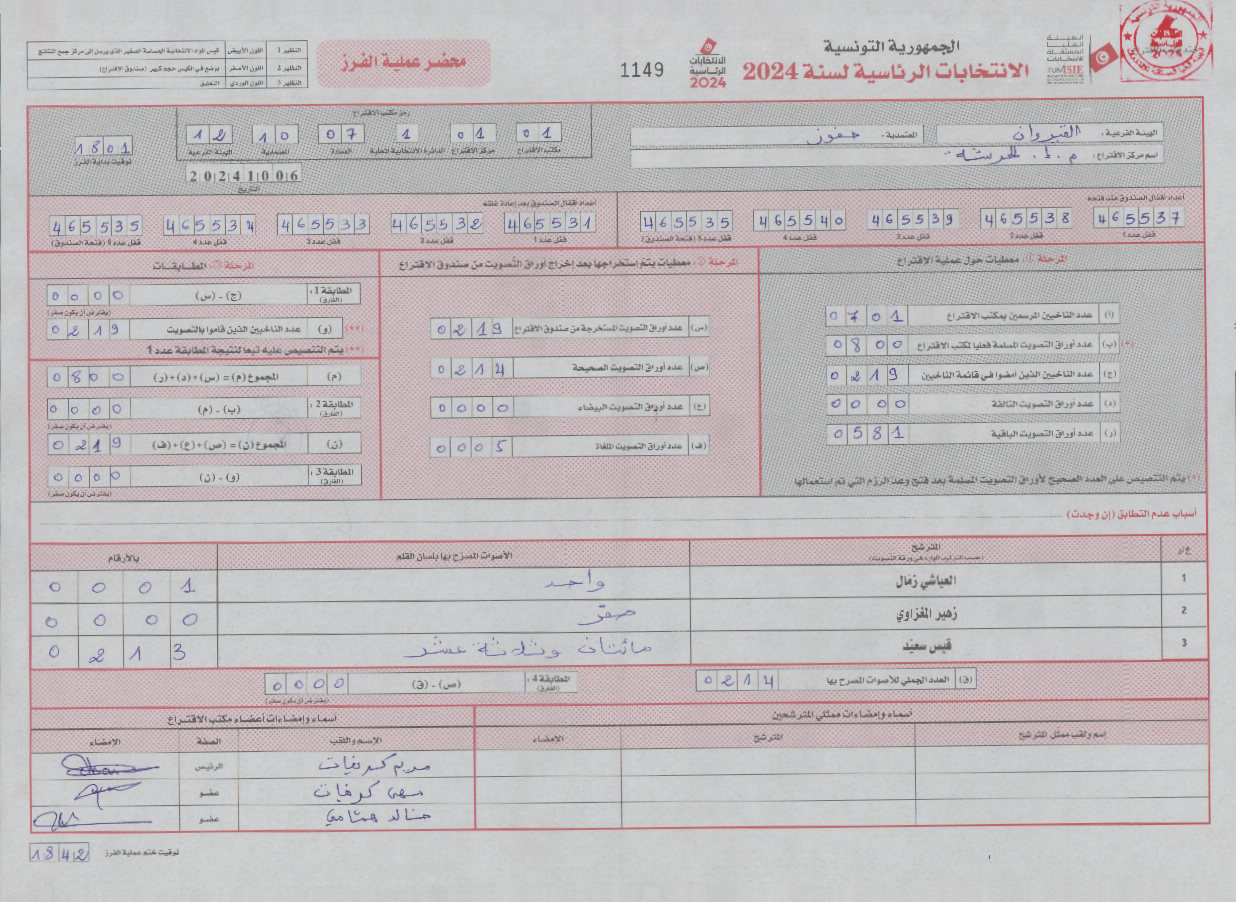 الجمهورية التونسية
الانتخابات الرئاسية لسنة 2024
الهيئة العليا المستقلة للانتخابات
TUNISIE
الانتخابات الرئاسية 2024
1149
محضر عملية الفرز
النظير 1 اللون الأبيض كيس المواد الانتخابية الحساسة الصغير الذي يرسل إلى مركز جمع النتائج
النظير 2 اللون الأصفر يوضع في الكيس حجم كبير (صندوق الاقتراع)
النظير 3 اللون الوردي التعليق
الهيئة الفرعية : القيروان
المعتمدية : حفوز
اسم مركز الاقتراع : م.إ.
رمز مكتب الاقتراع
01 01 1 07 10 12
مكتب الاقتراع مركز الاقتراع الدائرة الانتخابية المحلية العمادة المعتمدية الهيئة الفرعية
20241006
التاريخ
1801
توقيت بداية الفرز
أعداد أقفال الصندوق عند فتحه
465537 465538 465539 465540 465535
قفل عدد 1 قفل عدد 2 قفل عدد 3 قفل عدد 4 قفل عدد 5 (فتحة الصندوق)
أعداد أقفال الصندوق بعد إعادة غلقه
465531 465532 465533 465534 465535
قفل عدد 1 قفل عدد 2 قفل عدد 3 قفل عدد 4 قفل عدد 5 (فتحة الصندوق)
المرحلة ①: معطيات حول عملية الاقتراع
(أ) عدد الناخبين المرسمين بمكتب الاقتراع 0701
(*) (ب) عدد أوراق التصويت المسلمة فعليا لمكتب الاقتراع 0800
(ج) عدد الناخبين الذين أمضوا في قائمة الناخبين 0219
(د) عدد أوراق التصويت التالفة 0000
(ر) عدد أوراق التصويت الباقية 0581
(*) يتم التنصيص على العدد الصحيح لأوراق التصويت المسلمة بعد فتح وعد الرزم التي تم استعمالها
المرحلة ②: معطيات يتم استخراجها بعد إخراج أوراق التصويت من صندوق الاقتراع
(س) عدد أوراق التصويت المستخرجة من صندوق الاقتراع 0219
(ص) عدد أوراق التصويت الصحيحة 0214
(ع) عدد أوراق التصويت البيضاء 0000
(ف) عدد أوراق التصويت الملغاة 0005
المرحلة ③: المطابقات
المطابقة 1 : (الفارق) (ج) - (س) 0000
(يفترض أن يكون صفر)
(**) (و) عدد الناخبين الذين قاموا بالتصويت 0219
(**) يتم التنصيص عليه تبعا لنتيجة المطابقة عدد 1
(م) المجموع (م) = (س) + (د) + (ر) 0800
المطابقة 2 : (الفارق) (ب) - (م) 0000
(يفترض أن يكون صفر)
(ن) المجموع (ن) = (ص) + (ع) + (ف) 0219
المطابقة 3 : (الفارق) (و) - (ن) 0000
(يفترض أن يكون صفر)
أسباب عدم التطابق (إن وجدت)
ع/ر المترشح (حسب الترتيب الوارد في ورقة التصويت) الأصوات المصرح بها بلسان القلم بالأرقام
1 العياشي زمّال واحد 0001
2 زهير المغزاوي صفر 0000
3 قيس سعيّد مائتان وثلاثة عشر 0213
(ق) العدد الجملي للأصوات المصرح بها 0214
المطابقة 4 : (الفارق) (ص) - (ق) 0000
(يفترض أن يكون صفر)
أسماء وإمضاءات ممثلي المترشحين
إسم ولقب ممثل المترشح المترشح الإمضاء
أسماء وإمضاءات أعضاء مكتب الاقتراع
الإسم واللقب الصفة الإمضاء
مريم الرئيس
سهى عضو
خالد عضو
توقيت ختم عملية الفرز 1842